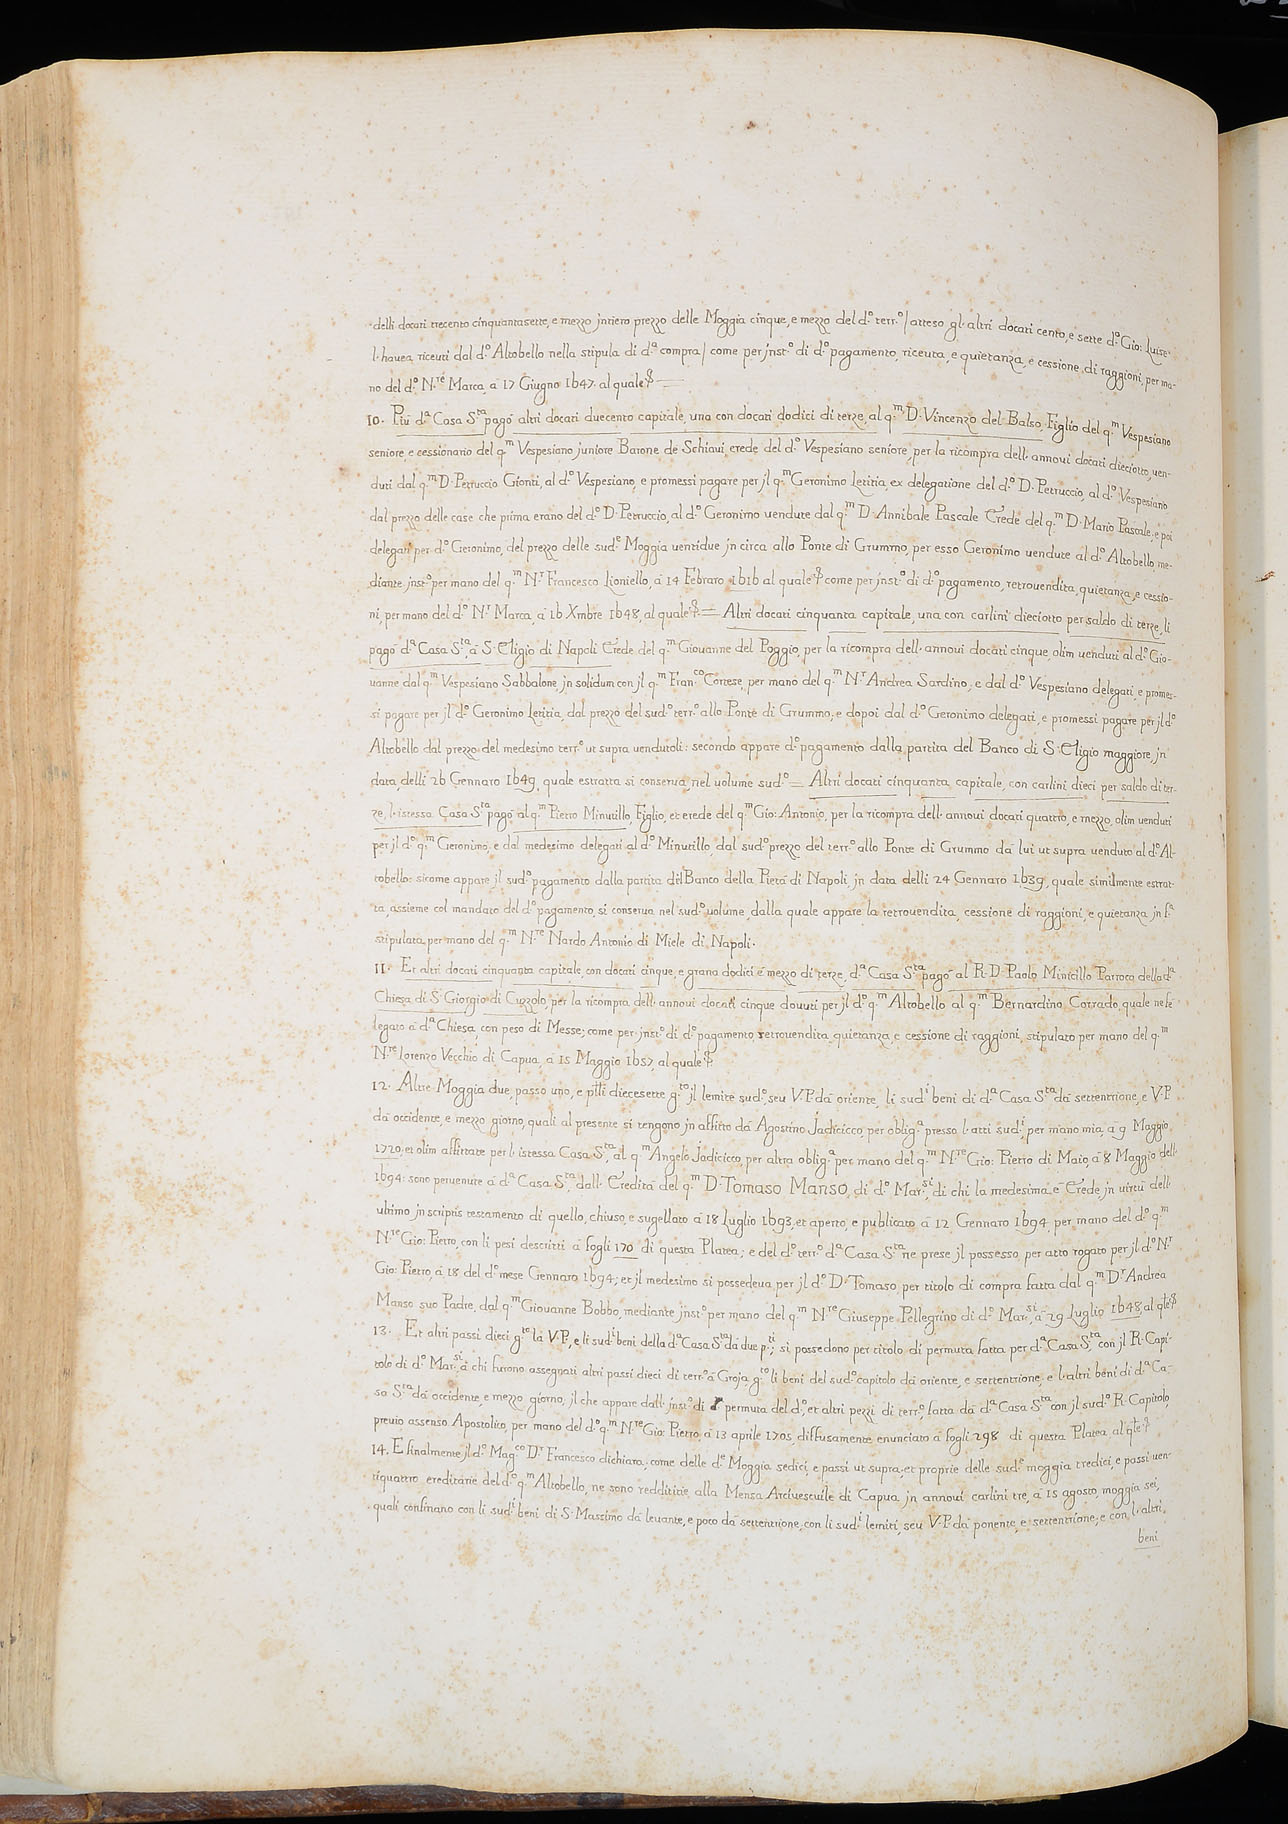 delli docati trecento cinquantasette, e mezzo jntiero prezzo delle Moggia cinque, e mezzo del d.º terr.º / atteso gl'altri docati cento, e sette d.º Gio: Luise
l'havea riceuti dal d.º Altobello nella stipula di d.ª compra / come per jnst.º di d.º pagamento, riceuta, e quietanza, e cessione di raggioni, per ma-
no del d.º N.re Marca, à 17 Giugno 1647. al quale &
10. Più d.ª Casa S.ta pagò altri docati duecento capitale, una con docati dodici di terze, al q.m D. Vincenzo del Balso, Figlio del q.m Vespesiano
seniore, e cessionario del q.m Vespesiano juniore Barone de Schiaui, erede del d.º Vespesiano seniore, per la ricompra dell'annoui docati dieciotto, uen-
duti dal q.m D. Petruccio Gionti, al d.º Vespesiano, e promessi pagare per jl q.m Geronimo Letitia, ex delegatione del d.º D. Petruccio, al d.º Vespesiano
dal prezzo delle case che prima erano del d.º D. Petruccio, al d.º Geronimo uendute dal q.m D. Annibale Pascale Erede del q.m D. Mario Pascale, e poi
delegati per d.º Geronimo, del prezzo delle sud.e Moggia uentidue jn circa allo Ponte di Grummo, per esso Geronimo uendute al d.º Altobello me-
diante jnst.º per mano del q.m N.r Francesco Lioniello, à 14 Febraro 1616 al quale & come per jnst.º di d.º pagamento, retrouendita, quietanza, e cessio-
ni, per mano del d.º N.r Marca, à 16 Xmbre 1648, al quale & = Altri docati cinquanta capitale, una con carlini dieciotto per saldo di terze, li
pagò d.ª Casa S.ta, à S. Eligio di Napoli Erede del q.m Giouanne del Poggio, per la ricompra dell'annoui docati cinque, olim uenduti al d.º Gio-
uanne dal q.m Vespesiano Sabbalone, jn solidum con jl q.m Fran.co Cortese, per mano del q.m N.r Andrea Sardino, e dal d.º Vespesiano delegati, e promes-
si pagare per jl d.º Geronimo Letitia, dal prezzo del sud.º terr.º allo Ponte di Grummo, e dopoi dal d.º Geronimo delegati, e promessi pagare per jl d.º
Altobello dal prezzo del medesimo terr.º ut supra uendutoli: secondo appare d.º pagamento dalla partita del Banco di S. Eligio maggiore, jn
data, delli 26 Gennaro 1649, quale estratta si conserua nel uolume sud.º = Altri docati cinquanta capitale, con carlini dieci per saldo di ter-
ze, l'istessa Casa S.ta pagò al q.m Pietro Minutillo Figlio, et erede del q.m Gio: Antonio, per la ricompra dell'annoui docati quattro, e mezzo, olim uenduti
per jl d.º q.m Geronimo, e dal medesimo delegati al d.º Minutillo, dal sud.º prezzo del terr.º allo Ponte di Grummo da lui ut supra uenduto al d.º Al-
tobello: sicome appare jl sud.º pagamento dalla partita del Banco della Pietà di Napoli, jn data delli 24 Gennaro 1639, quale similmente estrat-
ta, assieme col mandato del d.º pagamento, si conserua nel sud.º uolume, dalla quale appare la retrouendita, cessione di raggioni, e quietanza jn f.ª
stipulata, per mano del q.m N.re Nardo Antonio di Miele di Napoli.
11. Et altri docati cinquanta capitale, con docati cinque, e grana dodici e mezzo di terze, d.ª Casa S.ta pagò al R. D. Paolo Minicillo Parroco della d.ª
Chiesa di S. Giorgio di Cuzzolo, per la ricompra dell'annoui docati cinque douuti per jl d.º q.m Altobello al q.m Bernardino Corrado, quale ne fe
legato à d.ª Chiesa, con peso di Messe; come per jnst.º di d.º pagamento, retrouendita, quietanza, e cessione di raggioni, stipulato per mano del q.m
N.re Lorenzo Vecchio di Capua, à 15 Maggio 1657, al quale &
12. Altre Moggia due, passo uno, e p.lli diecesette g.to jl lemite sud.º, seu V.P. da oriente, li sud.i beni di d.ª Casa S.ta da settentrione, e V.P.
da occidente, e mezzo giorno, quali al presente si tengono jn affitto da Agostino Jadicicco, per oblig.ª presso l'atti sud.i, per mano mia, à 9 Maggio
1720; et olim affittate per l'istessa Casa S.ta, al q.m Angelo Jadicicco, per altra oblig.ª per mano del q.m N.re Gio: Pietro di Maio, à 8 Maggio dell'
1694: sono peruenute à d.ª Casa S.ta, dall'Eredità del q.m D. Tomaso Manso, di d.º Mar.si, di chi la medesima è Erede, jn uirtù dell'
ultimo jn scriptis testamento di quello, chiuso, e sugellato à 18 Luglio 1693, et aperto, e publicato à 12 Gennaro 1694, per mano del d.º q.m
N.re Gio: Pietro, con li pesi descritti à fogli 170 di questa Platea; e del d.º terr.º d.ª Casa S.ta ne prese jl possesso, per atto rogato per jl d.º N.r
Gio: Pietro, à 18 del d.º mese Gennaro 1694; et jl medesimo si possedeua, per jl d.º D. Tomaso, per titolo di compra fatta dal q.m D.r Andrea
Manso suo Padre, dal q.m Giouanne Bobbo, mediante jnst.º per mano del q.m N.re Giuseppe Pellegrino di d.º Mar.si, à 29 Luglio 1648, al q.le &
13. Et altri passi dieci g.to la V.P., e li sud.i beni della d.ª Casa S.ta da due p.ti; si possedono per titolo di permuta fatta per d.ª Casa S.ta con jl R. Capi-
tolo di d.º Mar.si, à chi furono assegnati altri passi dieci di terr.º à Groja, g.to li beni del sud.º capitolo da oriente, e settentrione, e l'altri beni di d.ª Ca-
sa S.ta da occidente, e mezzo giorno; jl che appare dall'jnst.º di permuta del d.º, et altri pezzi di terr.º, fatta da d.ª Casa S.ta con jl sud.º R. Capitolo,
preuio assenso Apostolico, per mano del d.º q.m N.re Gio: Pietro, à 13 aprile 1705, diffusamente enunciato à fogli 298 di questa Platea, al q.le &
14. E finalmente jl d.º Mag.co D.r Francesco dichiara, come delle d.e Moggia sedici, e passi ut supra, et proprie delle sud.e moggia tredici, e passi uen-
tiquattro ereditarie del d.º q.m Altobello, ne sono redditizie, alla Mensa Arciuescuile di Capua jn annoui carlini tre, à 15 agosto, moggia sei,
quali confinano con li sud.i beni di S. Massimo da leuante, e poco da settentrione, con li sud.i lemiti, seu V.P. da ponente, e settentrione, e con l'altri
beni